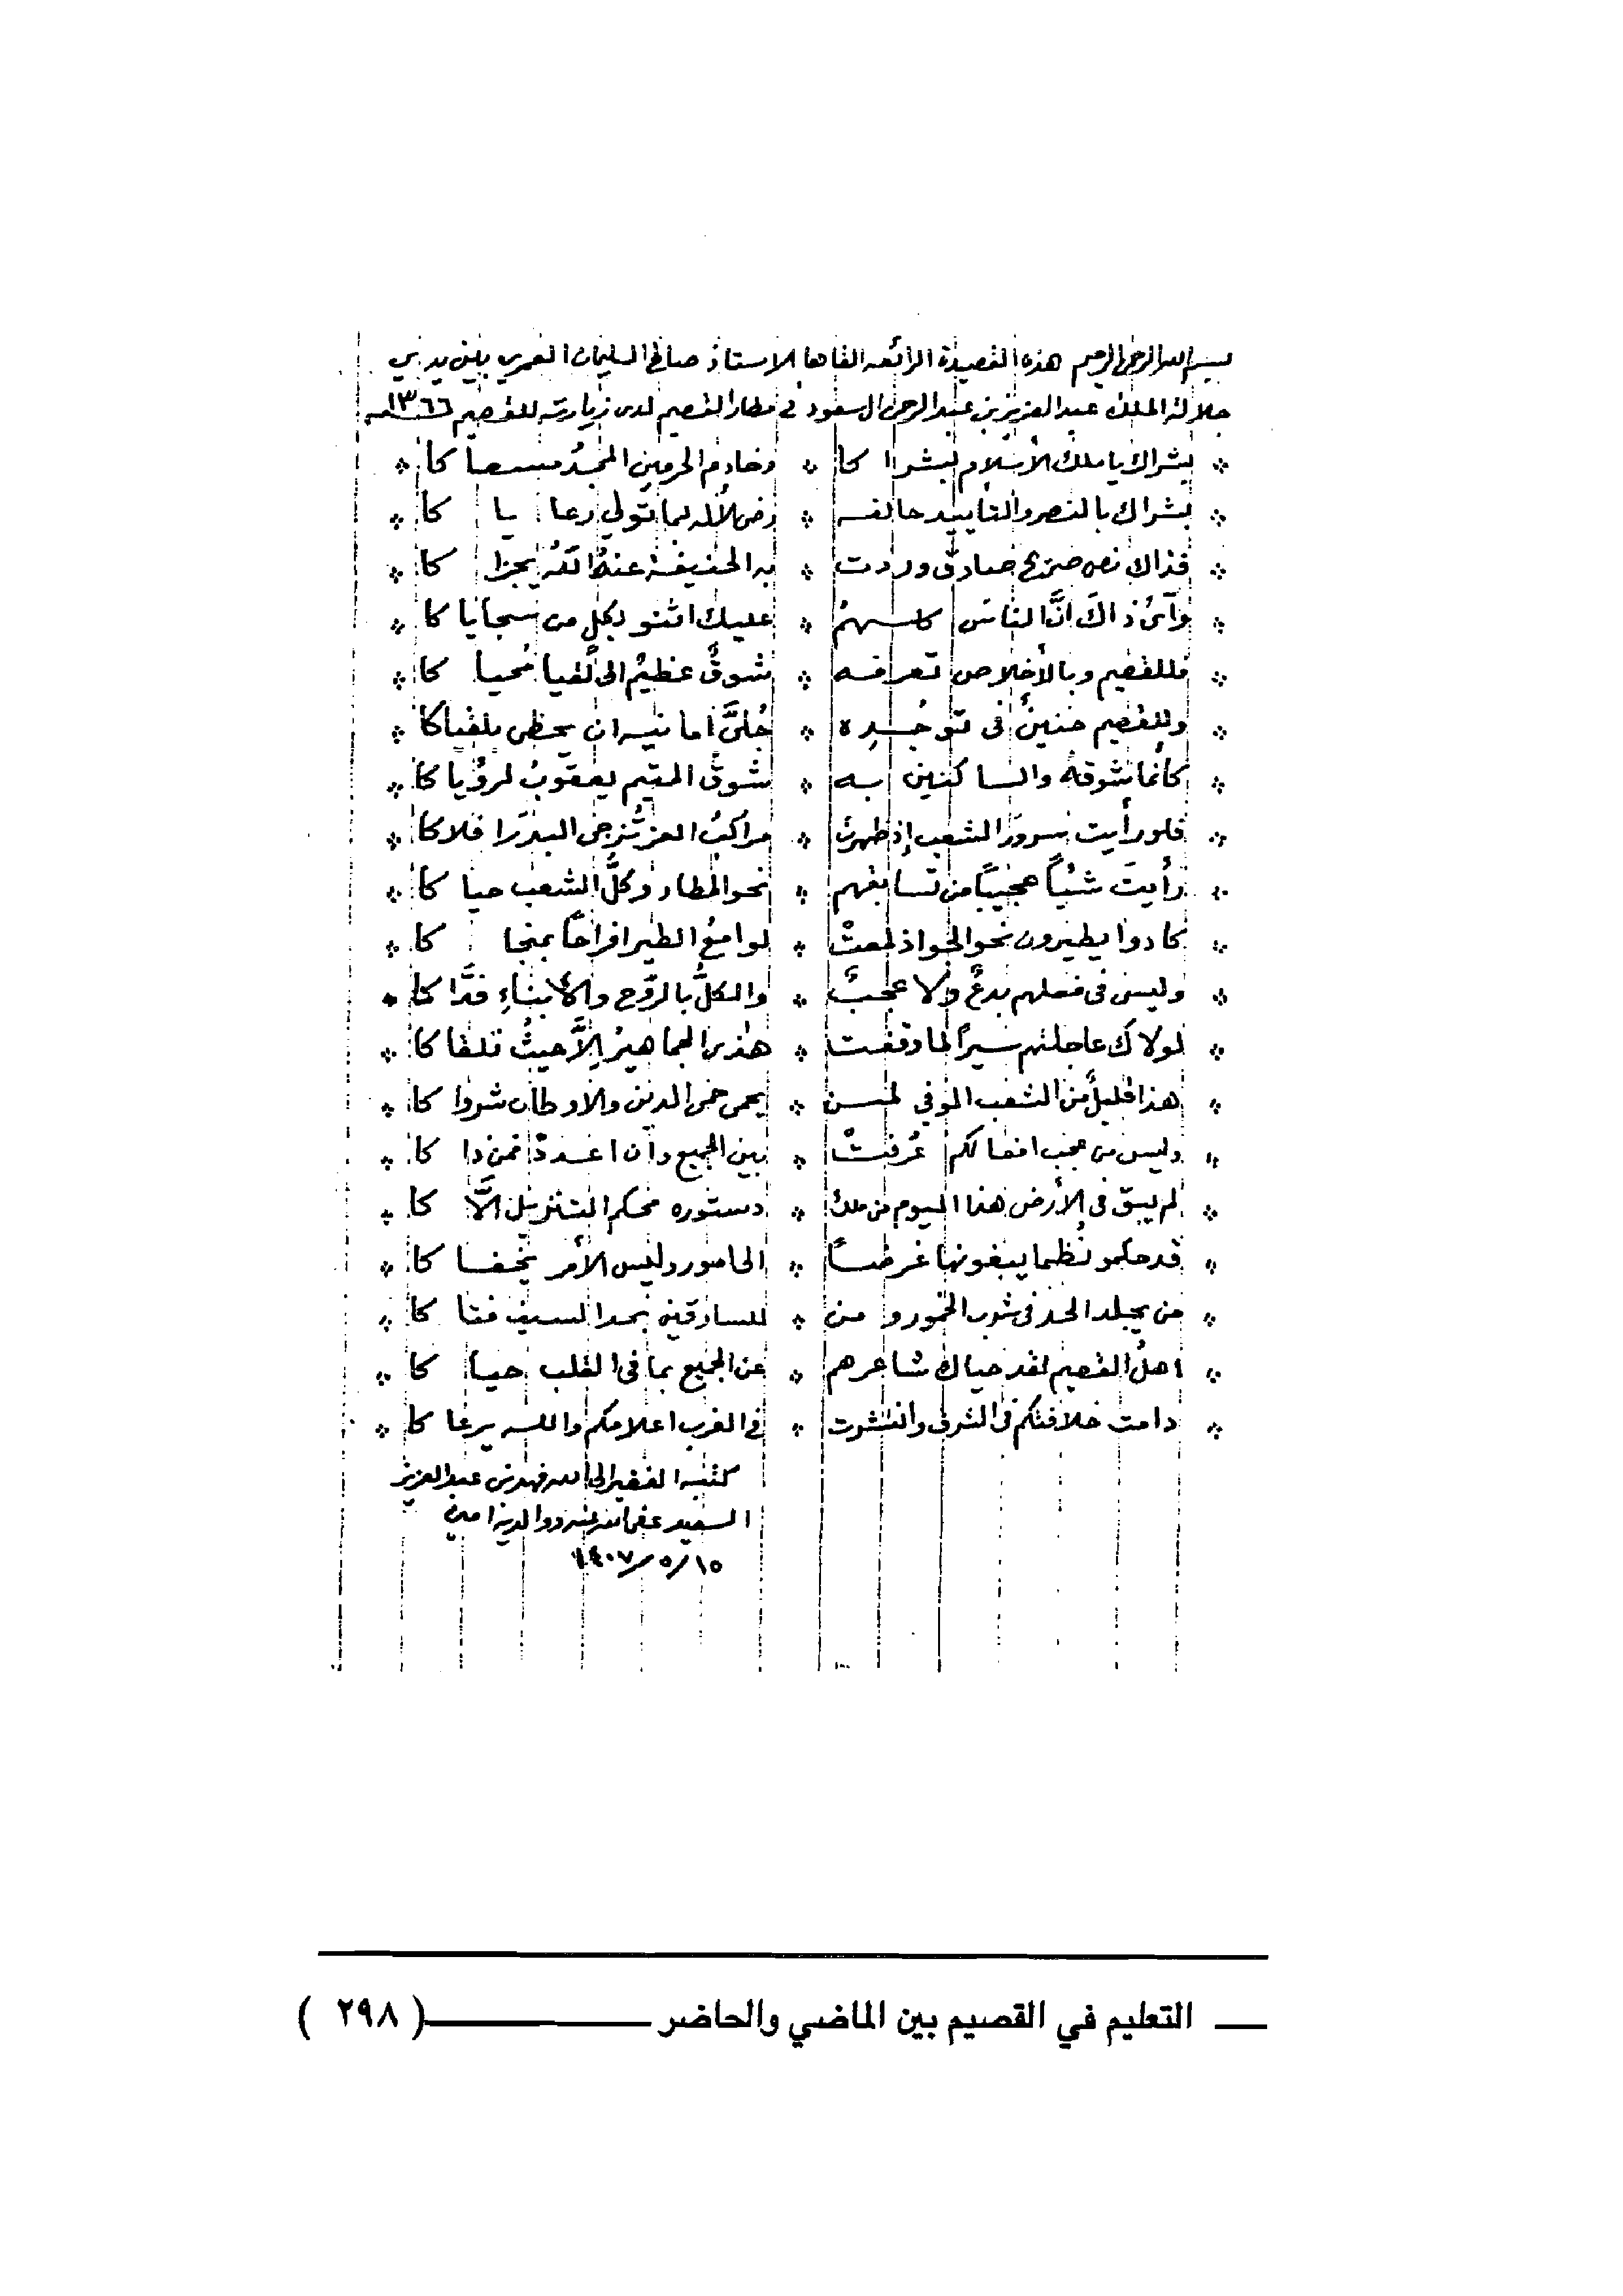 بسم الله الرحمن الرحيم هذه القصيدة الرائعه القاها الاستاذ صالح السليمان العمري بين يدي
جلالة الملك عبد العزيز بن عبد الرحمن ال سعود في مطار القصيم لدى زيارته للقصيم ١٣٦٦هـ
بشراك يا ملك الأسلام بشرا كا * وخادم الحرمين المجدُ مسعا كا
بشراك بالنصر والتأييد حالفه * رضى الأله لما تولي رعا يا كا
فذاك نص صريح صادق وردت * به الحنيفة عنه الله يجزا كا
وآيُ ذاكَ انَّ الناسَ كلهمُ * عليك اثنو بكل من سجايا كا
فللقصيم وبالأخلاص تعرفه * شوقٌ عظيمٌ الى لقيا مُحيا كا
وللقصيم حنينٌ في توجُدِه * جُلىَّ أمانيه ان يحظى بلقياكا
كأنما شوقهُ والساكنين به * شوقُ المتيم يعقوبُ لرؤيا كا
فلو رأيت سرورَ الشعب إذ ظهرت * مراكبُ العز تُزجى البدرَ افلاكا
رأيتَ شيْاً عجيباً من تسابقهم * نحو المطار وكلُّ الشعب حيا كا
كادوا يطيرون نحو الجو اذ لمعتْ * لوامعُ الطير افراحاً بمنجا كا
وليس في فعلهم بدعٌ ولا عجبٌ * والكلُّ بالرّوح والأبناءِ فدَّا كا
لولاك عاجلتهم سيراً لما وقفت * هذى الجماهيرُ إلاَّ حيثُ تلقا كا
هذا قليلٌ من الشعب الموفي لمن * يحمى حمى الدين والاوطان شروا كا
وليس من عجب افضالكم عُرفتْ * بين الجميع وأن اعددْ فمن ذا كا
لم يبق في الأرض هذا اليوم من ملك * دستوره محكم التنزيل الاَّ كا
قد حكمو نُظما يبغونها غرضاً * الحاسور وليس الأمر يخفا كا
من يجلد الحد في شرب الخمور ومن * للسارقين بحد السيف فتا كا
اهلُ القصيم لقد حياك شاعرهم * عن الجميع بما في القلب حيا كا
دامت خلافتكم في الشرق وانتشرت * في الغرب اعلامكم والله يرعا كا
كتبه الفقير الى الله فهد بن عبد العزيز
السعيد عفى الله عنه ووالديه امين
١٤٠٧/٥/١٥
التعليم في القصيم بين الماضي والحاضر ( ٢٩٨ )